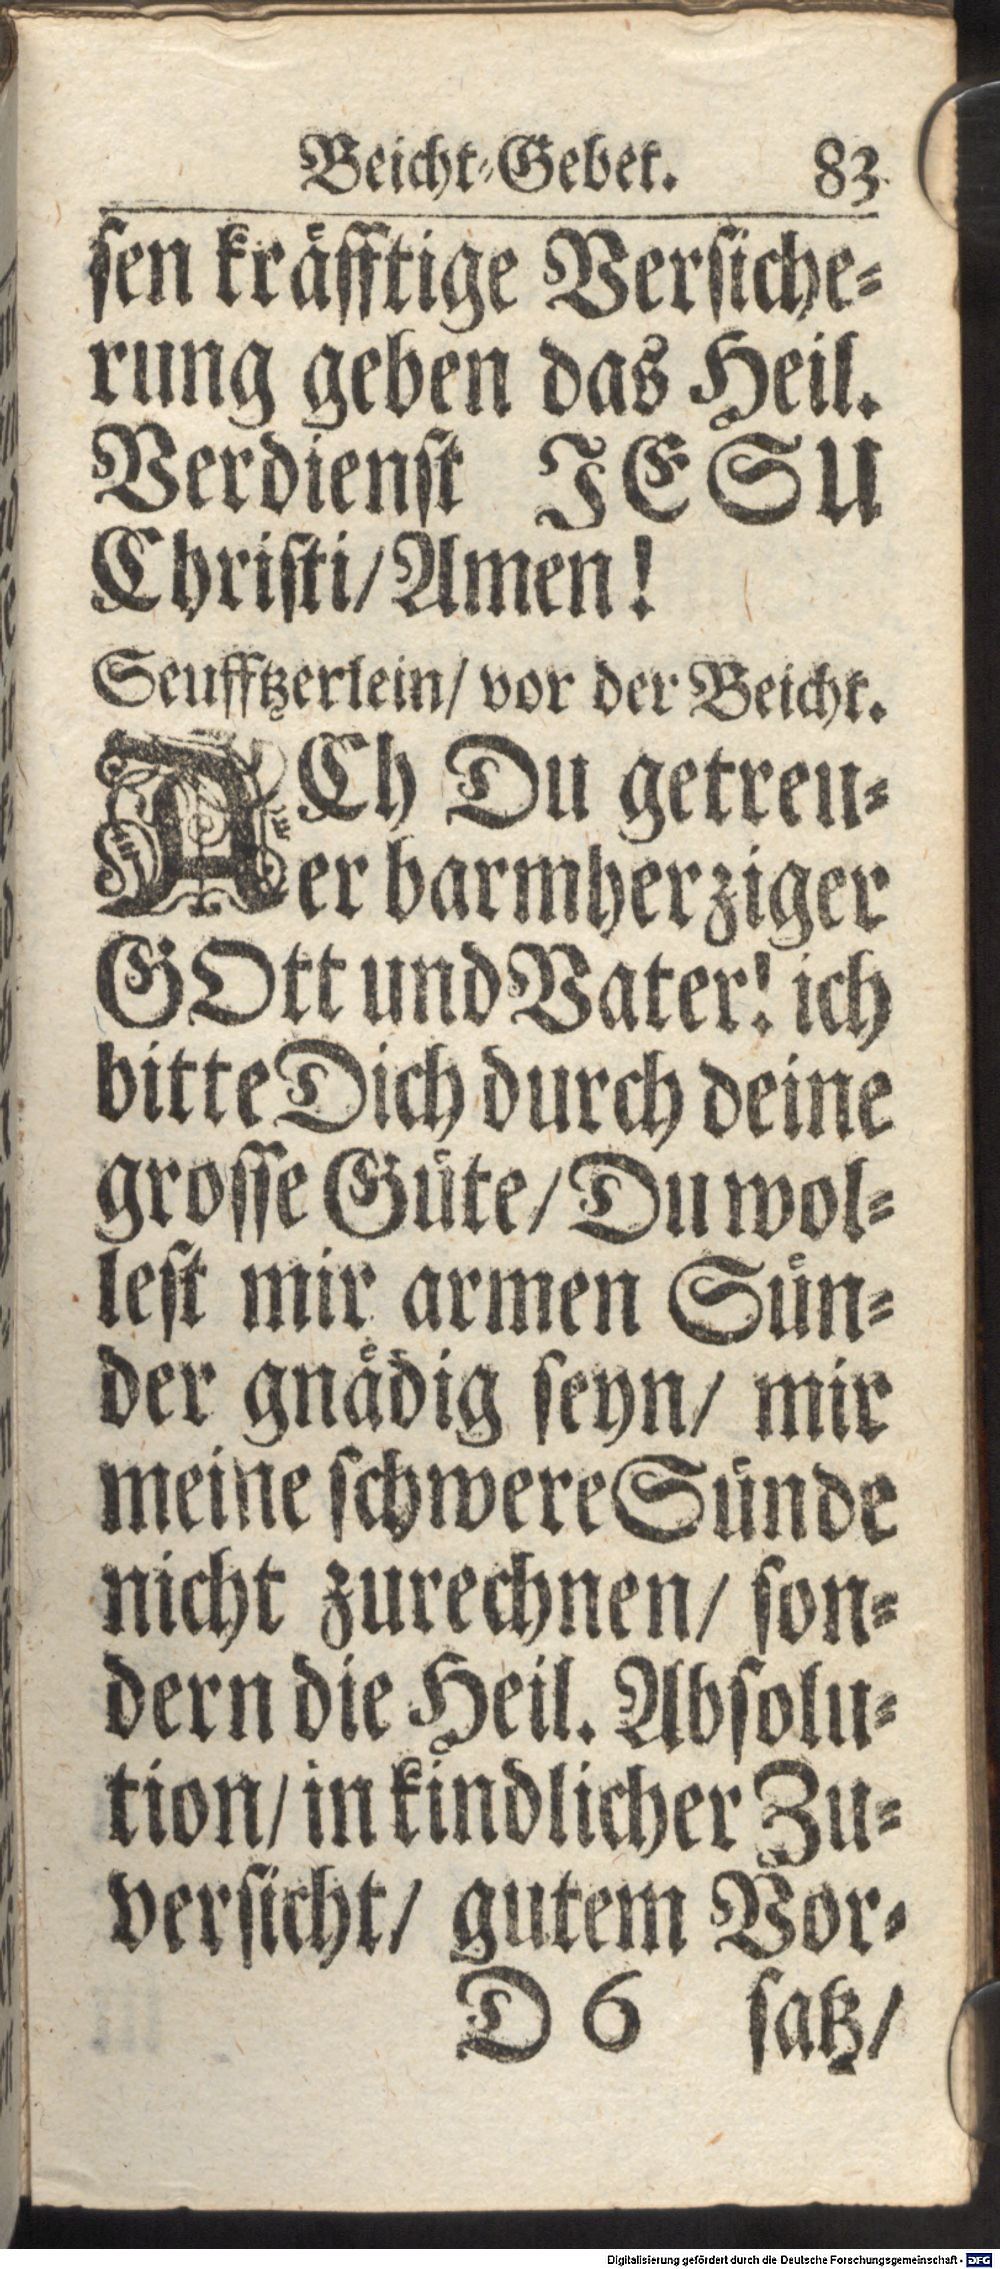 Beicht-Gebet. 83
sen kräfftige Versiche-
rung geben das Heil.
Verdienst JESU
Christi/ Amen!
Seufftzerlein/ vor der Beicht.
ACh Du getreu-
er barmherziger
GOtt und Vater! ich
bitte Dich durch deine
grosse Güte/ Du wol-
lest mir armen Sün-
der gnädig seyn/ mir
meine schwere Sünde
nicht zurechnen/ son-
dern die Heil. Absolu-
tion/ in kindlicher Zu-
versicht/ gutem Vor-
D 6 satz/
Digitalisierung gefördert durch die Deutsche Forschungsgemeinschaft - DFG